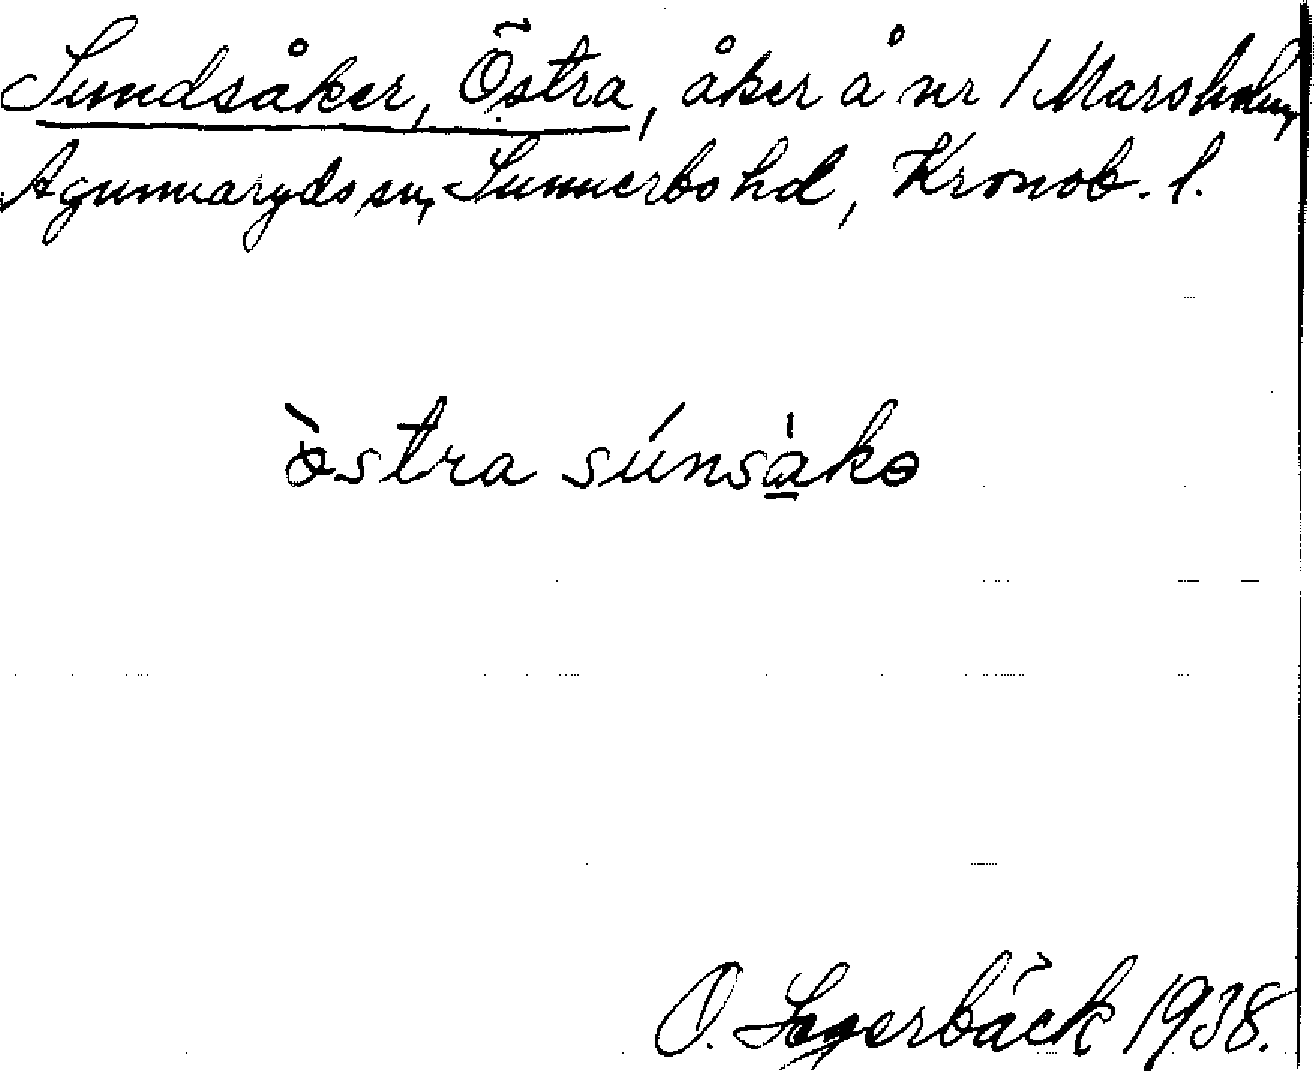 Sundsåker, Östra, åker å nr 1 Marsholm,
Agunnaryds sn, Sunnerbo hd, Kronob. l.
östra súnsåkə
O. Lagerbäck 1938.